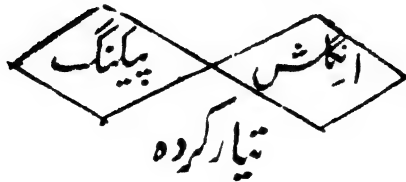 انگلش پیکنگ
تیار کردہ